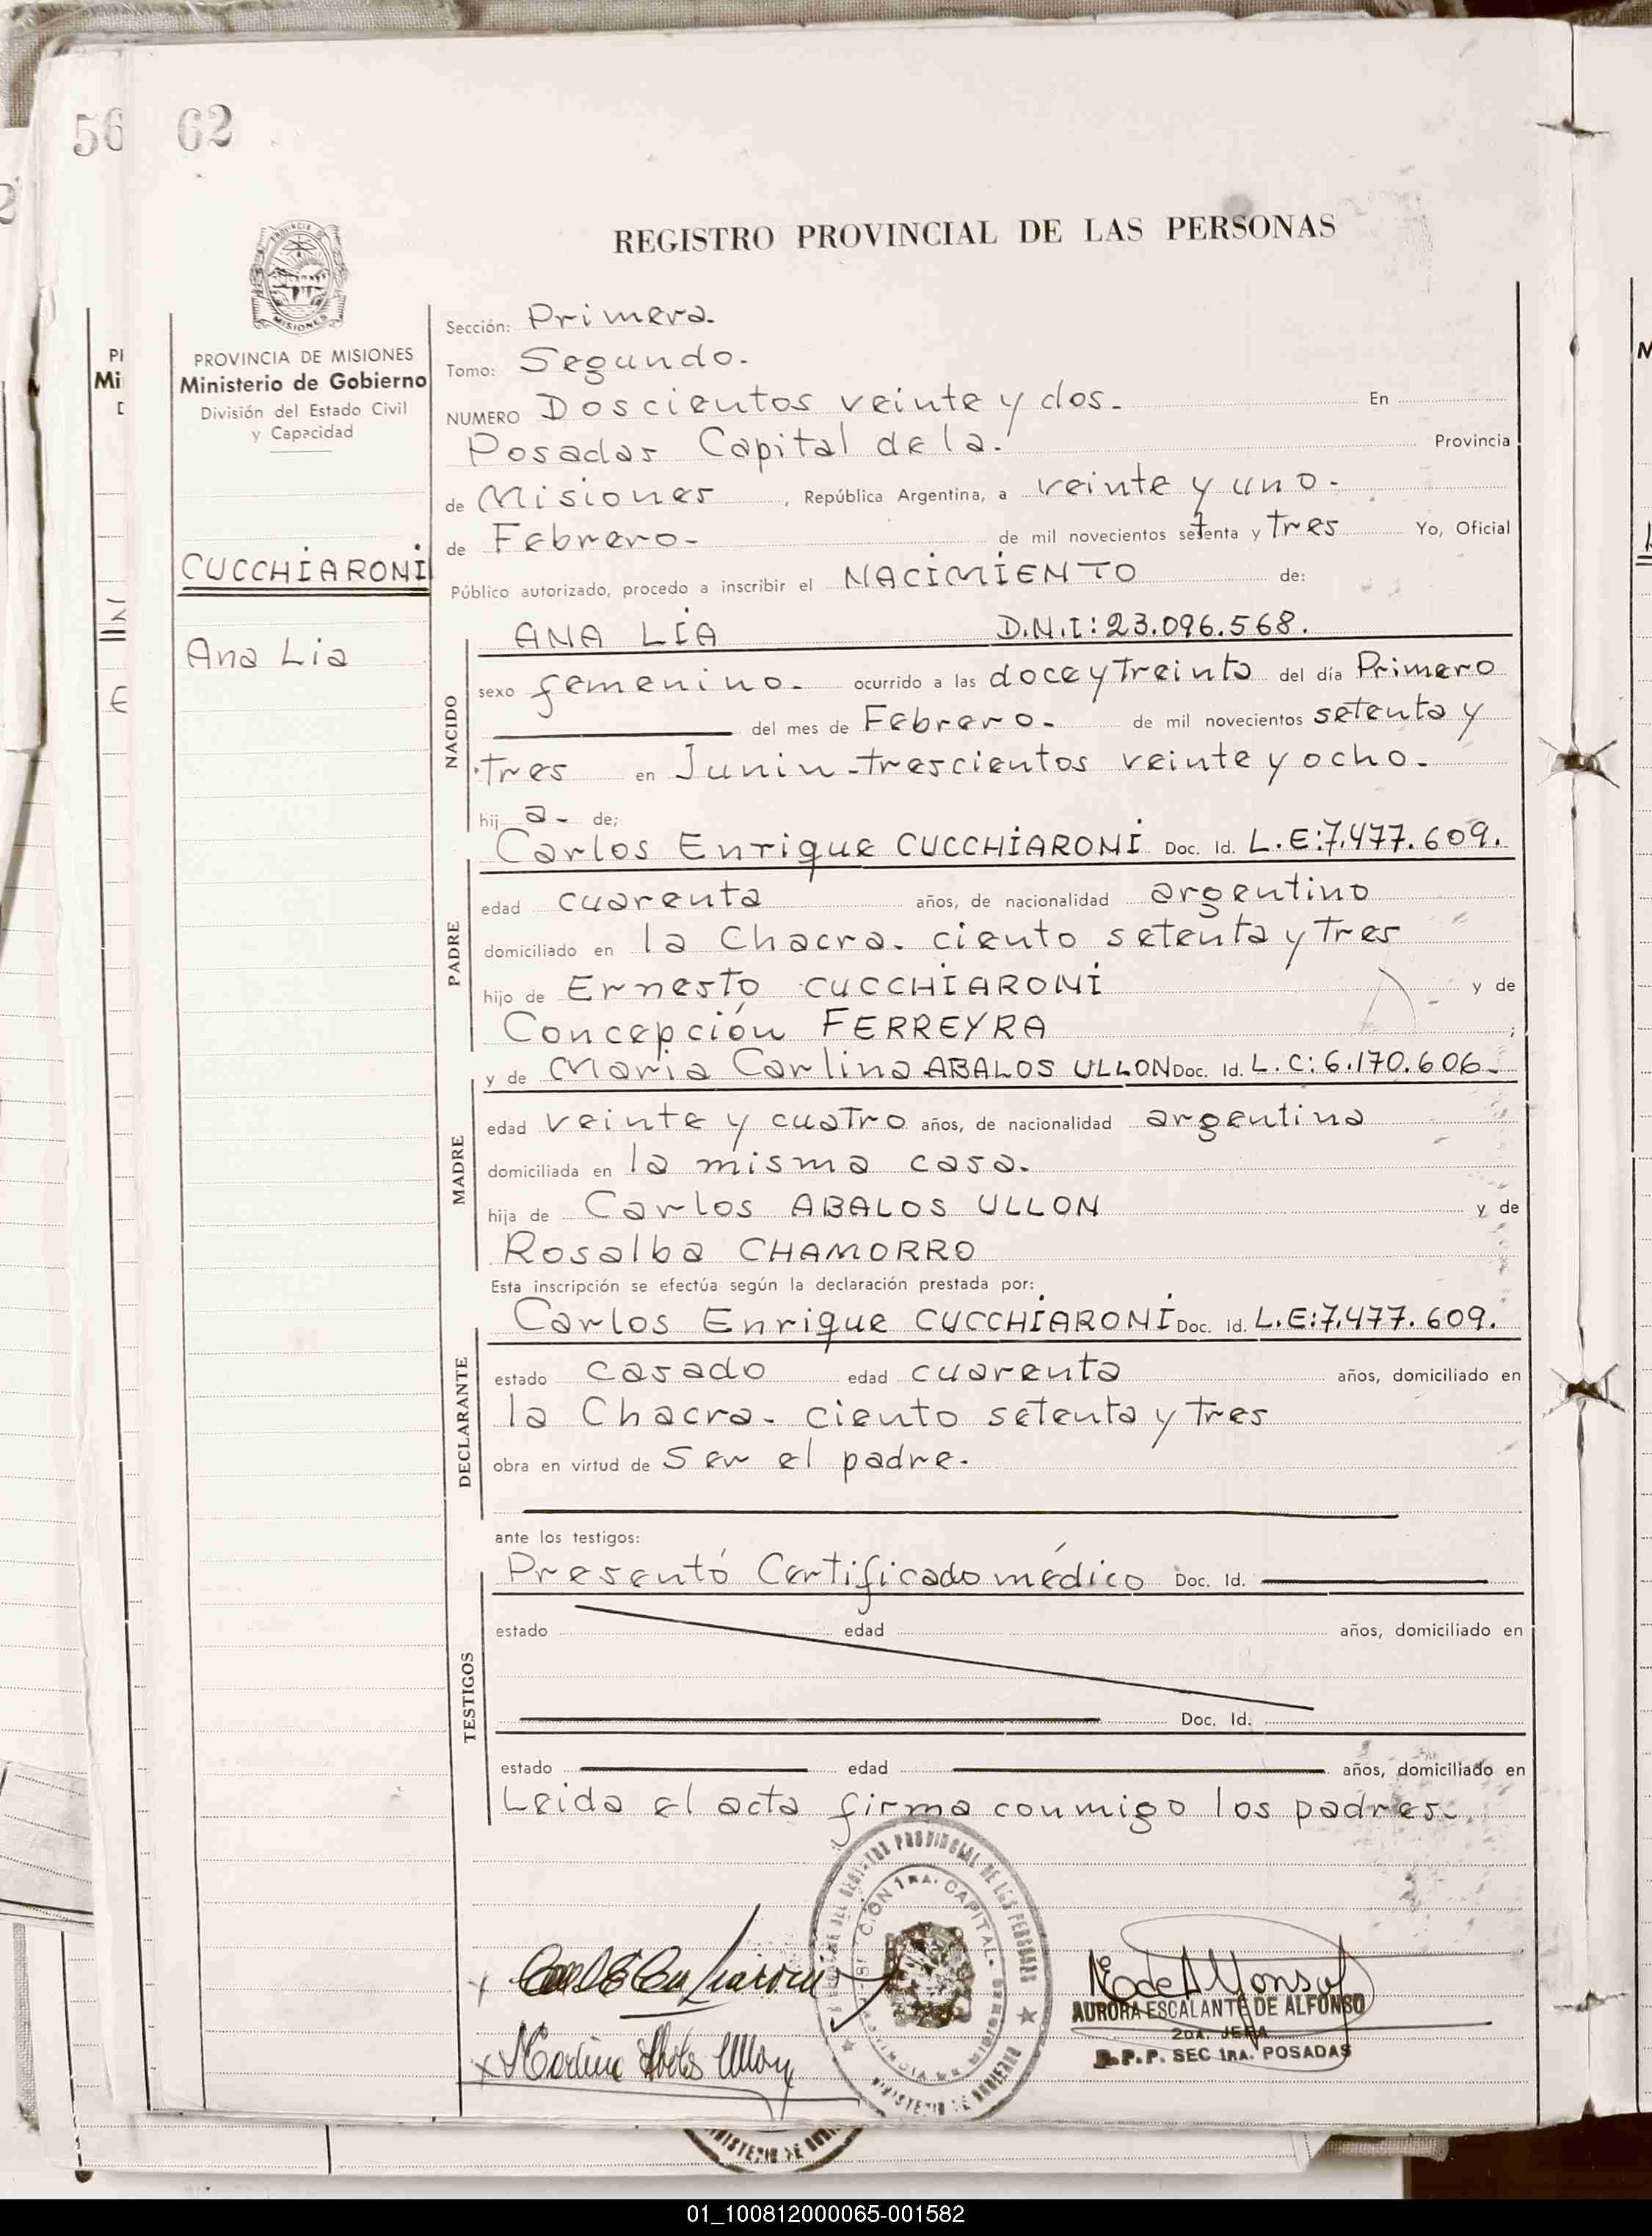 56 62
REGISTRO PROVINCIAL DE LAS PERSONAS
PROVINCIA DE MISIONES
Ministerio de Gobierno
División del Estado Civil
y Capacidad
CUCCHIARONI
Ana Lia
Sección: Primera.
Tomo: Segundo.
NUMERO Doscientos veinte y dos. En
Posadas Capital de la. Provincia
de Misiones, República Argentina, a veinte y uno.
de Febrero. de mil novecientos setenta y tres Yo, Oficial
Público autorizado, procedo a inscribir el NACIMIENTO de:
NACIDO
ANA LIA D.N.I: 23.096.568.
sexo femenino. ocurrido a las doce y treinta del día Primero
del mes de Febrero. de mil novecientos setenta y
tres en Junin - trescientos veinte y ocho.
hij a. de;
PADRE
Carlos Enrique CUCCHIARONI Doc. Id. L.E:7.477.609.
edad cuarenta años, de nacionalidad argentino
domiciliado en la Chacra. ciento setenta y tres
hijo de Ernesto CUCCHIARONI y de
Concepción FERREYRA ;
MADRE
y de Maria Carlina ABALOS ULLON Doc. Id. L.C: 6.170.606.
edad veinte y cuatro años, de nacionalidad argentina
domiciliada en la misma casa.
hija de Carlos ABALOS ULLON y de
Rosalba CHAMORRO
Esta inscripción se efectúa según la declaración prestada por:
DECLARANTE
Carlos Enrique CUCCHIARONI Doc. Id. L.E:7.477.609.
estado casado edad cuarenta años, domiciliado en
la Chacra. ciento setenta y tres
obra en virtud de Ser el padre.
ante los testigos:
TESTIGOS
Presentó Certificado médico Doc. Id.
estado edad años, domiciliado en
Doc. Id.
estado edad años, domiciliado en
Leida el acta firma conmigo los padres.
REGISTRO PROVINCIAL DE LAS PERSONAS
1RA. CAPITAL
MINISTERIO DE GOBIERNO
AURORA ESCALANTE DE ALFONSO
2DA. JEFA
R.P.P. SEC 1RA. POSADAS
01_100812000065-001582